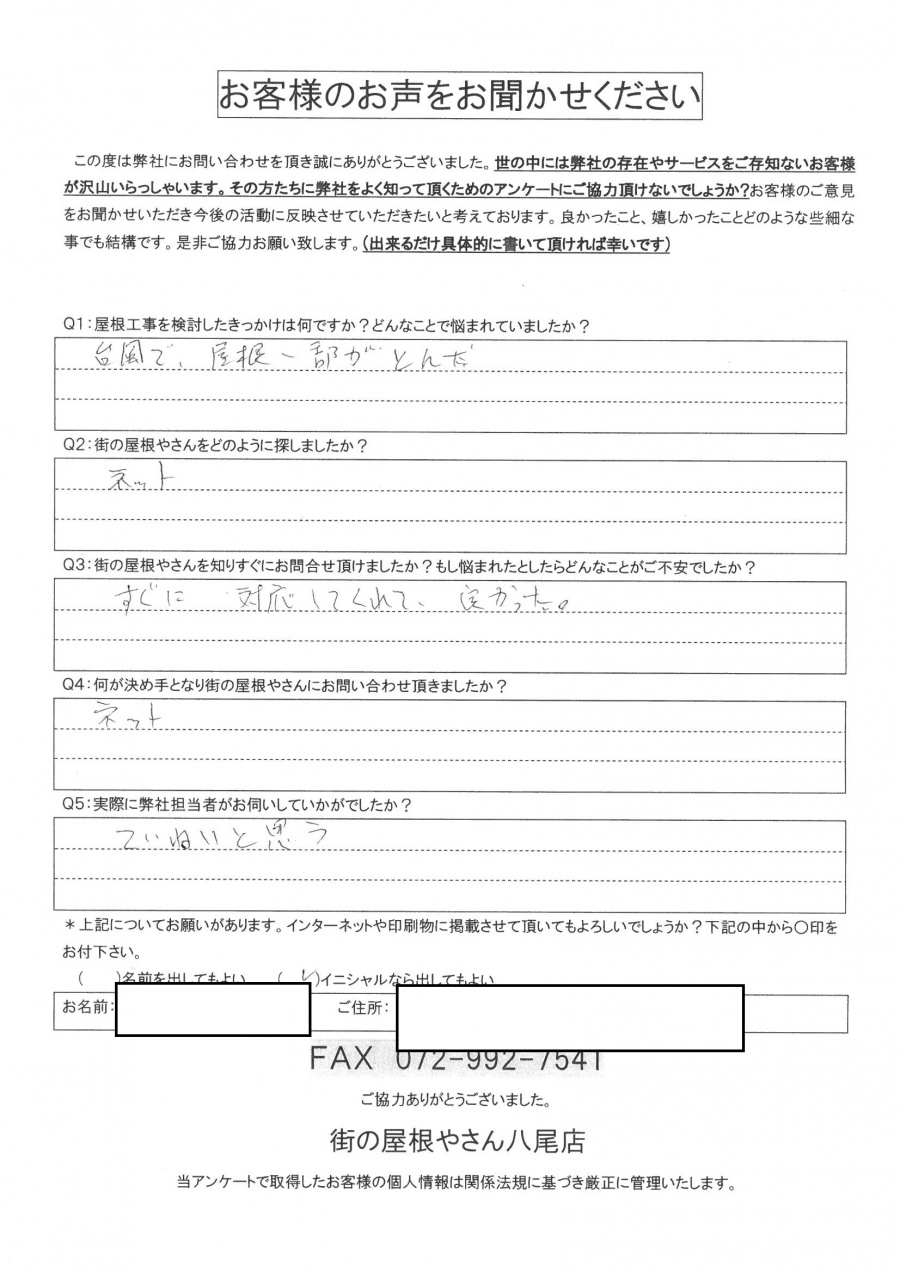 お客様のお声をお聞かせください
この度は弊社にお問い合わせを頂き誠にありがとうございました。世の中には弊社の存在やサービスをご存知ないお客様
が沢山いらっしゃいます。その方たちに弊社をよく知って頂くためのアンケートにご協力頂けないでしょうか?お客様のご意見
をお聞かせいただき今後の活動に反映させていただきたいと考えております。良かったこと、嬉しかったことどのような些細な
事でも結構です。是非ご協力お願い致します。(出来るだけ具体的に書いて頂ければ幸いです)
Q1:屋根工事を検討したきっかけは何ですか?どんなことで悩まれていましたか?
台風で、屋根一部がとんだ
Q2:街の屋根やさんをどのように探しましたか?
ネット
Q3:街の屋根やさんを知りすぐにお問合せ頂けましたか?もし悩まれたとしたらどんなことがご不安でしたか?
すぐに 対応してくれて、良かった。
Q4:何が決め手となり街の屋根やさんにお問い合わせ頂きましたか?
ネット
Q5:実際に弊社担当者がお伺いしていかがでしたか?
ていねいと思う
*上記についてお願いがあります。インターネットや印刷物に掲載させて頂いてもよろしいでしょうか?下記の中から○印を
お付下さい。
( )名前を出してもよい (レ)イニシャルなら出してもよい
お名前: ご住所:
FAX 072-992-7541
ご協力ありがとうございました。
街の屋根やさん八尾店
当アンケートで取得したお客様の個人情報は関係法規に基づき厳正に管理いたします。